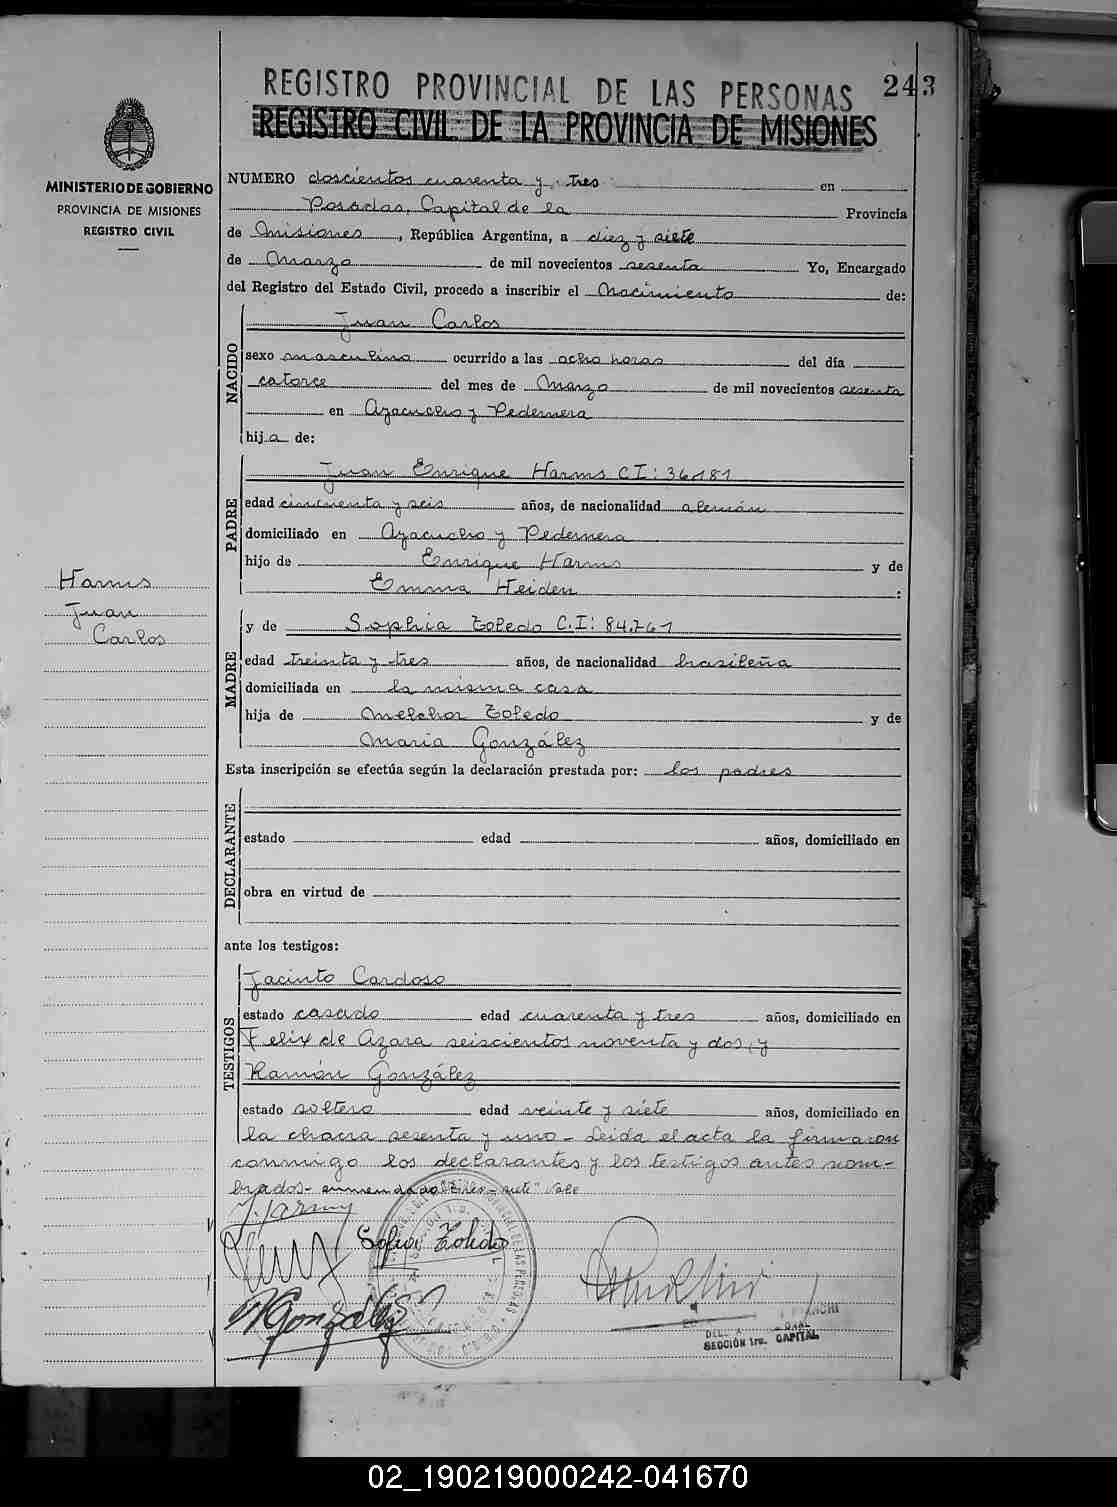 REGISTRO PROVINCIAL DE LAS PERSONAS
243
REGISTRO CIVIL DE LA PROVINCIA DE MISIONES
MINISTERIO DE GOBIERNO
PROVINCIA DE MISIONES
REGISTRO CIVIL
NUMERO doscientos cuarenta y tres en
Posadas, Capital de la Provincia
de Misiones, República Argentina, a diez y siete
de Marzo de mil novecientos sesenta Yo, Encargado
del Registro del Estado Civil, procedo a inscribir el Nacimiento de:
NACIDO
Juan Carlos
sexo masculino ocurrido a las ocho horas del día
catorce del mes de Marzo de mil novecientos sesenta
en Ayacucho y Pedernera
hija de:
PADRE
Juan Enrique Harms CI: 36181
edad cincuenta y seis años, de nacionalidad alemán
domiciliado en Ayacucho y Pedernera
hijo de Enrique Harms y de
Emma Heiden :
Harms
Juan
Carlos
MADRE
y de Sophia Toledo C.I: 84.761
edad treinta y tres años, de nacionalidad brasileña
domiciliada en la misma casa
hija de Melchor Toledo y de
Maria González
Esta inscripción se efectúa según la declaración prestada por: los padres
DECLARANTE
estado edad años, domiciliado en
obra en virtud de
ante los testigos:
TESTIGOS
Jacinto Cardoso
estado casado edad cuarenta y tres años, domiciliado en
Felix de Azara seiscientos noventa y dos, y
Ramón González
estado soltero edad veinte y siete años, domiciliado en
la chacra sesenta y uno - Leida el acta la firmaron
conmigo los declarantes y los testigos antes nom-
brados - enmendado: siete" Vale
J. Harms
Sofia Toledo
R González
SECCIÓN 1ra. CAPITAL
02_190219000242-041670